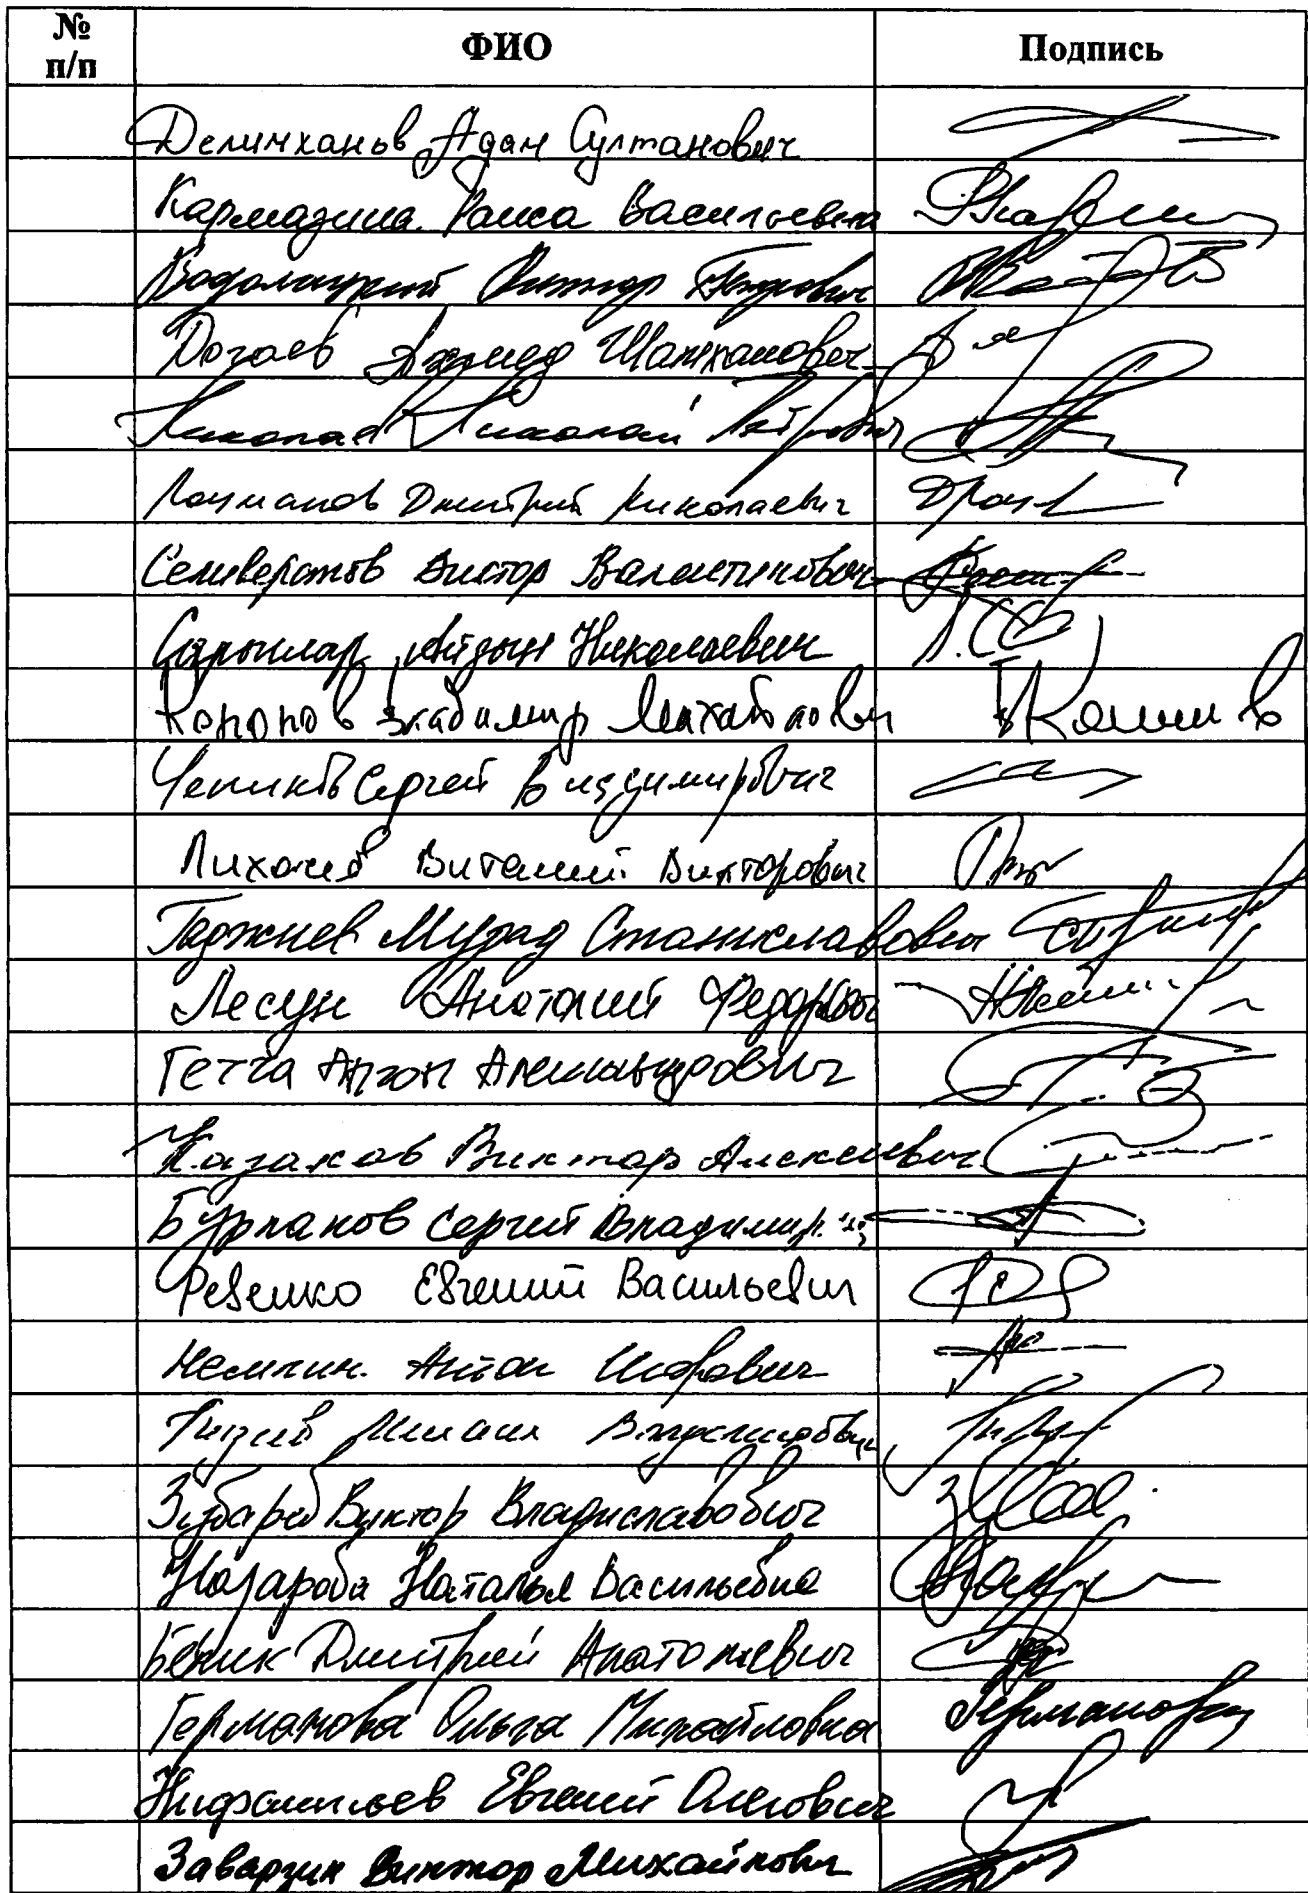 № п/п ФИО Подпись
Делимханов Адам Султанович
Кармазина Раиса Васильевна
Водолацкий Виктор Петрович
Догаев Ахмед Шамханович
Николаев Николай Петрович
Лоцманов Дмитрий Николаевич
Селиверстов Виктор Валентинович
Сарыглар Айдын Николаевич
Кононов Владимир Михайлович
Чепиков Сергей Владимирович
Лихачев Виталий Викторович
Гаджиев Мурад Станиславович
Лесун Анатолий Федорович
Гетта Антон Александрович
Казаков Виктор Алексеевич
Бурлаков Сергей Владимир.
Ревенко Евгений Васильевич
Немкин Антон Игоревич
Зубарев Виктор Владиславович
Назарова Наталья Васильевна
Бежик Дмитрий Анатолиевич
Германова Ольга Михайловна Германова
Нифантьев Евгений Олегович
Заварзин Виктор Михайлович